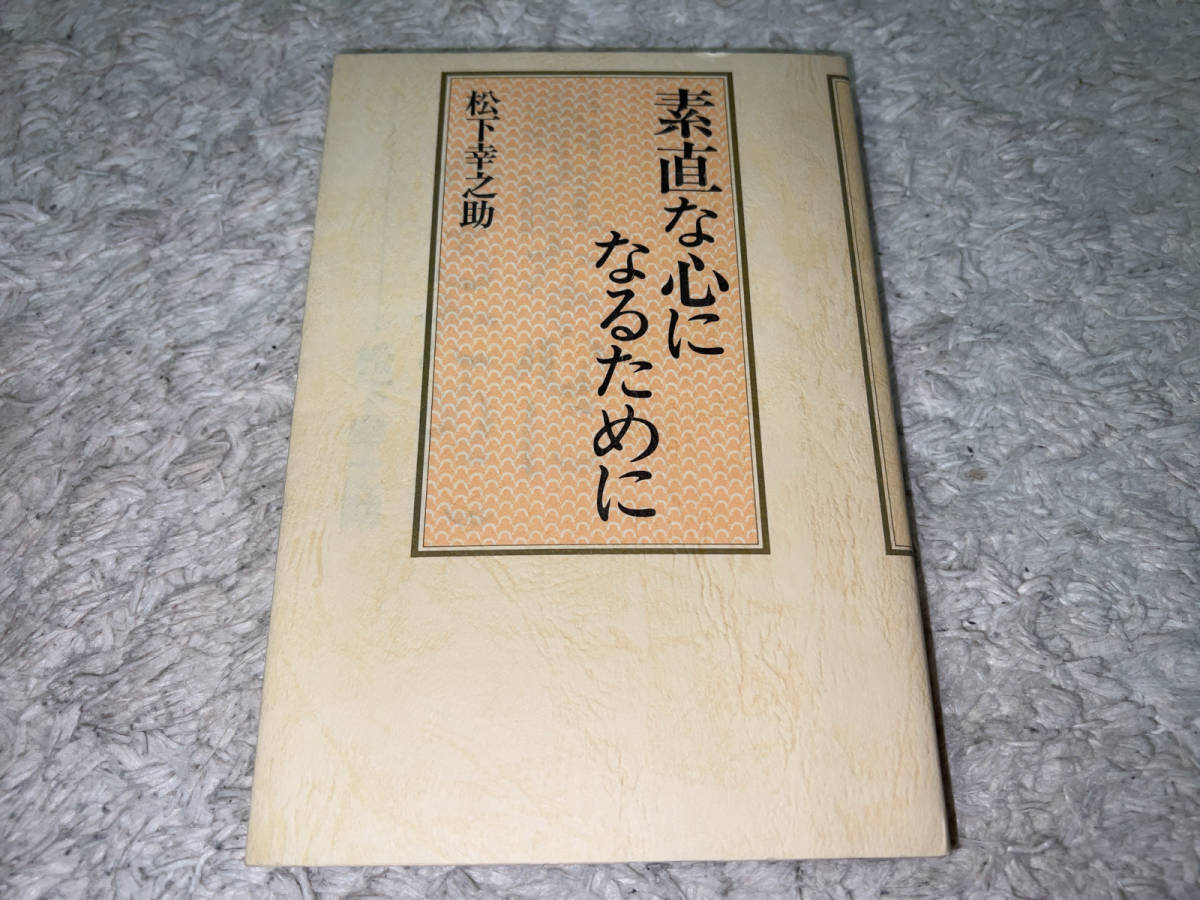 素直な心に
なるために
松下幸之助